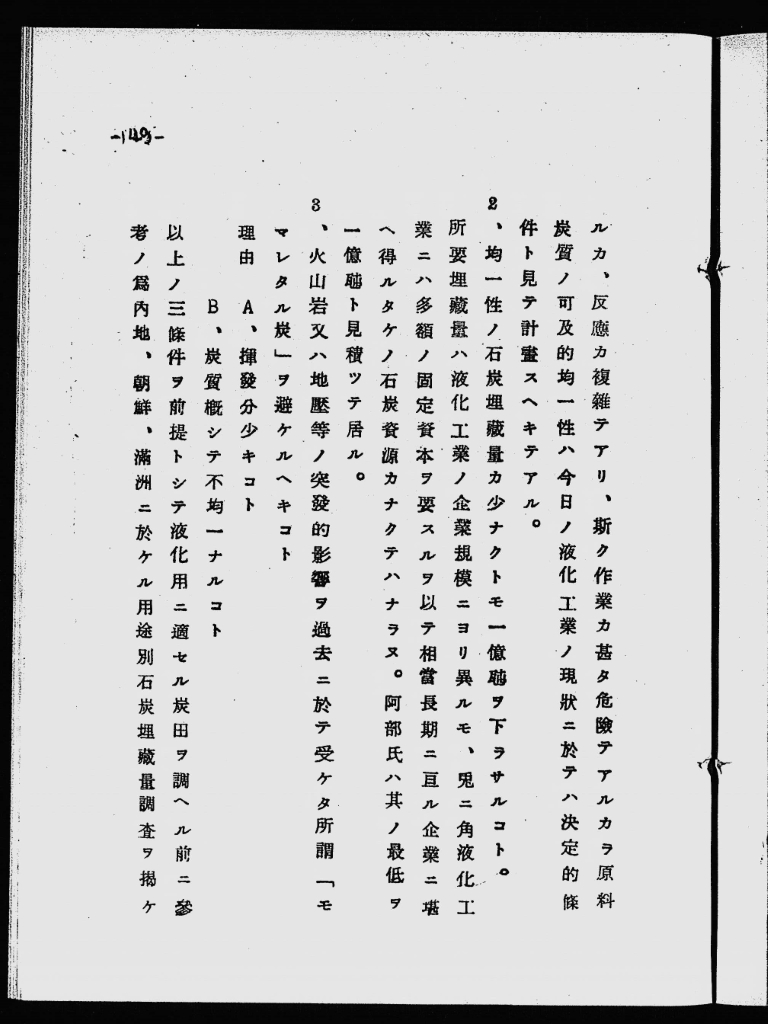 ルカ、反應カ複雜テアリ、斯ク作業カ甚タ危險テアルカラ原料
炭質ノ可及的均一性ハ今日ノ液化工業ノ現狀ニ於テハ決定的條
件ト見テ計畫スヘキテアル。
2、均一性ノ石炭埋藏量カ少ナクトモ一億瓲ヲ下ラサルコト。
所要埋藏量ハ液化工業ノ企業規模ニヨリ異ルモ、兎ニ角液化工
業ニハ多額ノ固定資本ヲ要スルヲ以テ相當長期ニ亘ル企業ニ堪
ヘ得ルタケノ石炭資源カナクテハナラヌ。阿部氏ハ其ノ最低ヲ
一億瓲ト見積ツテ居ル。
3、火山岩又ハ地壓等ノ突發的影響ヲ過去ニ於テ受ケタ所謂「モ
マレタル炭」ヲ避ケルヘキコト
理由 A、揮發分少キコト
B、炭質概シテ不均一ナルコト
以上ノ三條件ヲ前提トシテ液化用ニ適セル炭田ヲ調ヘル前ニ參
考ノ爲內地、朝鮮、滿洲ニ於ケル用途別石炭埋藏量調査ヲ揭ケ